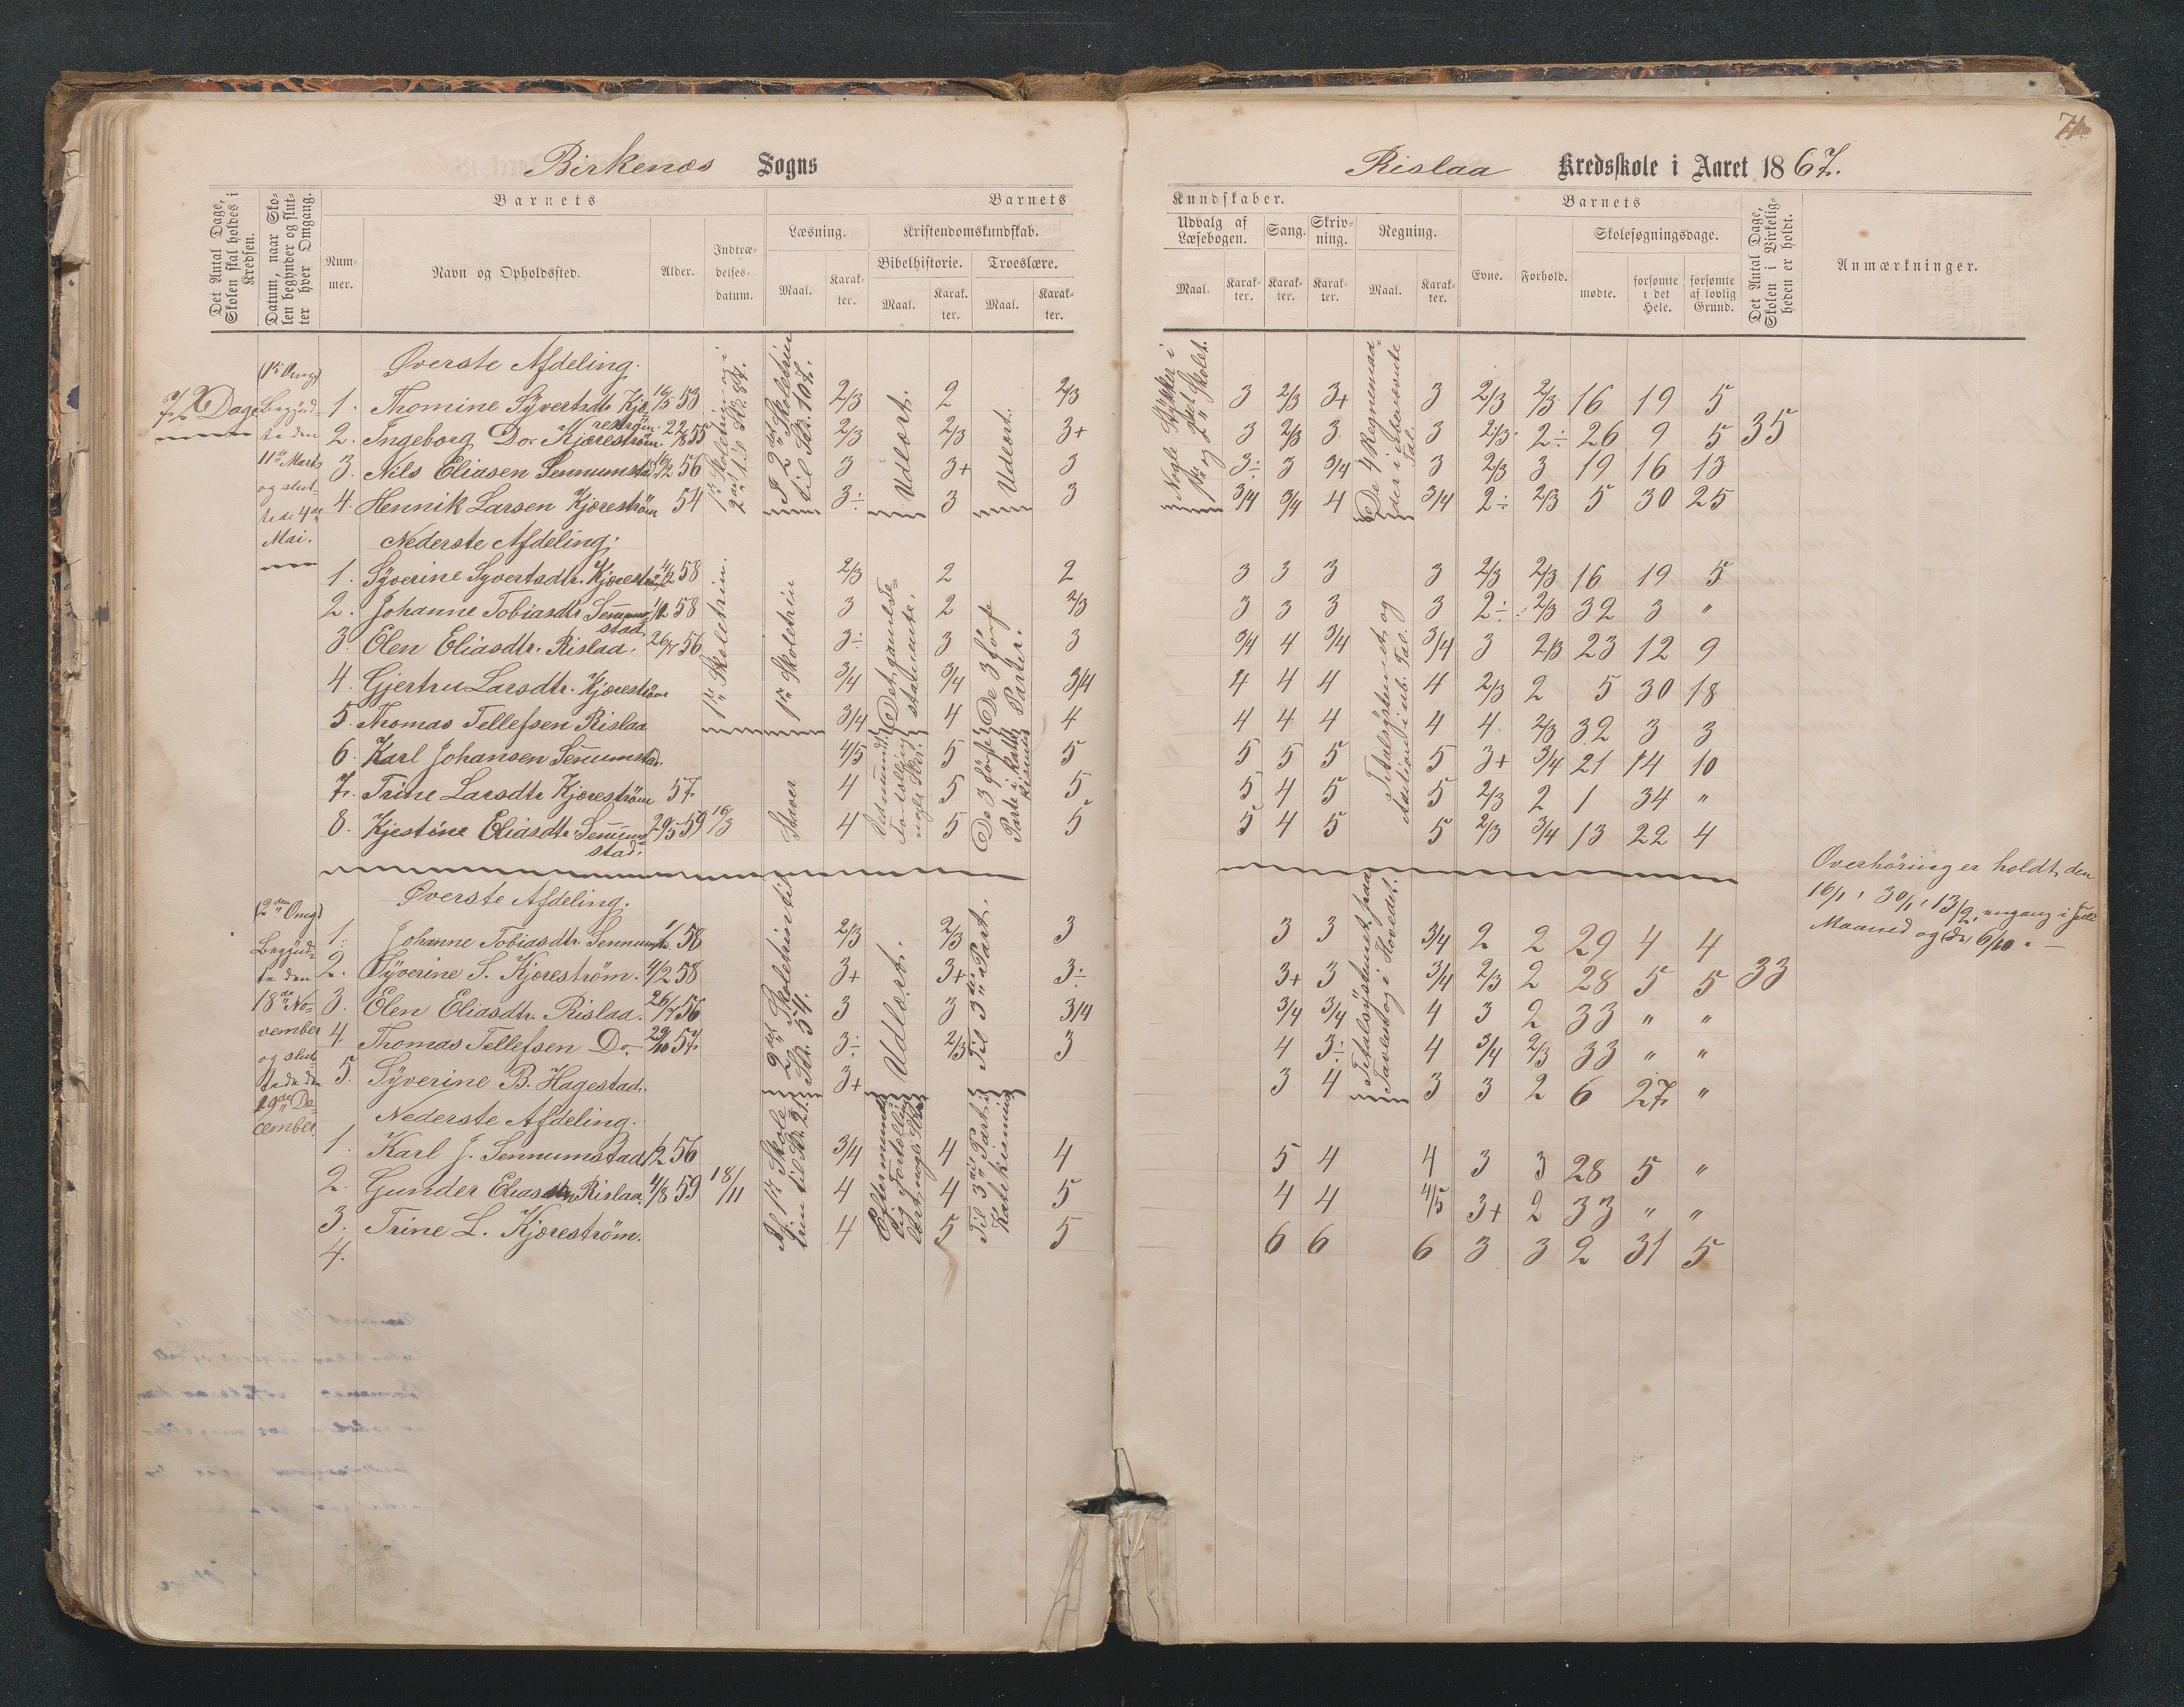 Birkenæs Sogns
Rislaa Kredsskole i Aaret 1867.
Det Antal Dage, Skolen skal holdes i Kredsen.
Datum, naar Skolen begynder og slutter hver Omgang.
Barnets
Barnets
Kundskaber.
Barnets
Det Antal Dage, Skolen i Virkeligheden er holdt.
Anmærkninger.
Nummer.
Navn og Opholdssted.
Alder.
Indtrædelsesdatum.
Læsning.
Kristendomskundskab.
Bibelhistorie.
Troeslære.
Maal.
Karakter.
Maal.
Karakter.
Maal.
Karakter.
Udvalg af Læsebogen.
Sang.
Skrivning.
Regning.
Maal.
Karakter.
Karakter.
Karakter.
Maal.
Karakter.
Evne.
Forhold.
Skolesøgningsdage.
mødte.
forsømte i det Hele.
forsømte af lovlig Grund.
Øverste Afdeling.
1. Thomine Syvertsdtr. Kjærestrøm. 16/5 53 2/3 2 2/3 3 2/3 3+ 3 2/3 2/3 16 19 5
2. Ingeborg Do. Kjærestrøm. 22/8 55 2/3 2/3 3+ 3 2/3 3 3 2/3 2÷ 26 9 5 35
3. Nils Eliasen Sennumstad 56 3 3+ 3 3÷ 3 3/4 3 2/3 3 19 16 13
4. Hennik Larsen Kjærestrøm 54 3÷ 3 3 3/4 3/4 4 3/4 2÷ 2/3 5 30 25
Nederste Afdeling.
1. Syverine Syvertsdtr. Kjærestrøm 4/2 58 2/3 2 2 3 3 3 3 2/3 2/3 16 19 5
2. Johanne Tobiasdtr. Sennumstad. 58 3 2 2/3 3 3 3 3 2÷ 2/3 32 3 "
3. Olen Eliasdtr. Rislaa. 26/7 56 3÷ 3 3 3/4 4 3/4 3/4 3 2/3 23 12 9
4. Gjertru Larsdtr. Kjærestrøm 3/4 3/4 3/4 4 4 4 4 2/3 2 5 30 18
5. Thomas Tellefsen Rislaa 3/4 4 4 4 4 4 4 4 2/3 32 3 3
6. Karl Johansen Sennumstad. 4/5 5 5 5 5 5 5 3+ 3/4 21 14 10
7. Trine Larsdtr. Kjærestrøm 57 4 5 5 5 4 5 5 2/3 2 1 34 "
8. Kjestine Eliasdtr. Sennumstad. 29/5 59 16/3 4 5 5 5 4 5 5 2/3 3/4 13 22 4
72 Dage
(1ste Omg)
Begyndte den
11te Marts
og sluttede 4de
Mai.
1ste Skoletrin og i
2det til St. 84.
I 2det Skoletrin
til St. 107.
Udlært.
Udlært.
Nogle Stykker i
1ste og 2det Skolet.
De 4 Regnemaader i ubenævnte
Tal.
1ste Skoletrin.
1ste Skoletrin
Staver
Det gamle Testamente.
De 3 første
Parter.
Titalsystemet og
Addition i ub. Tal.
Overhøring er holdt den
16/1, 30/1, 13/2, engang i Juli
Maaned og den 6/10. —
Øverste Afdeling.
1. Johanne Tobiasdtr. Sennumstad. 58 2/3 2/3 3 3 3 3/4 2 2 29 4 4
2. Syverine S. Kjærestrøm. 4/2 58 3+ 3+ 3÷ 3+ 3 3/4 2/3 2 28 5 5 33
3. Olen Eliasdtr. Rislaa. 26/7 56 3 3 3/4 3/4 3/4 4 3 2 33 " "
4. Thomas Tellefsen Do. 29/10 57 3÷ 2/3 3 4 3÷ 4 3/4 2/3 33 " "
5. Syverine B. Hagestad. 3+ 3 4 3 3 2 6 27 "
Nederste Afdeling.
1. Karl J. Sennumstad 56 3/4 4 4 5 4 4 3 3 28 5 "
2. Gunder Eliassen Rislaa 4/8 59 18/11 4 4 5 4 4 4/5 3+ 2 33 " "
3. Trine L. Kjærestrøm. 4 5 5 6 6 6 3 3 2 31 5
4.
(2den Omg)
Begyndte den
18de November
og sluttede den
19de December.
2det Skoletrin til
St. 54.
Udlært.
Til 3die Part.
Titalsystemet paa
Tavlen og i Hovedet.
I 1ste Skoletrin til St. 21.
Til 3die Part i
Katekismus